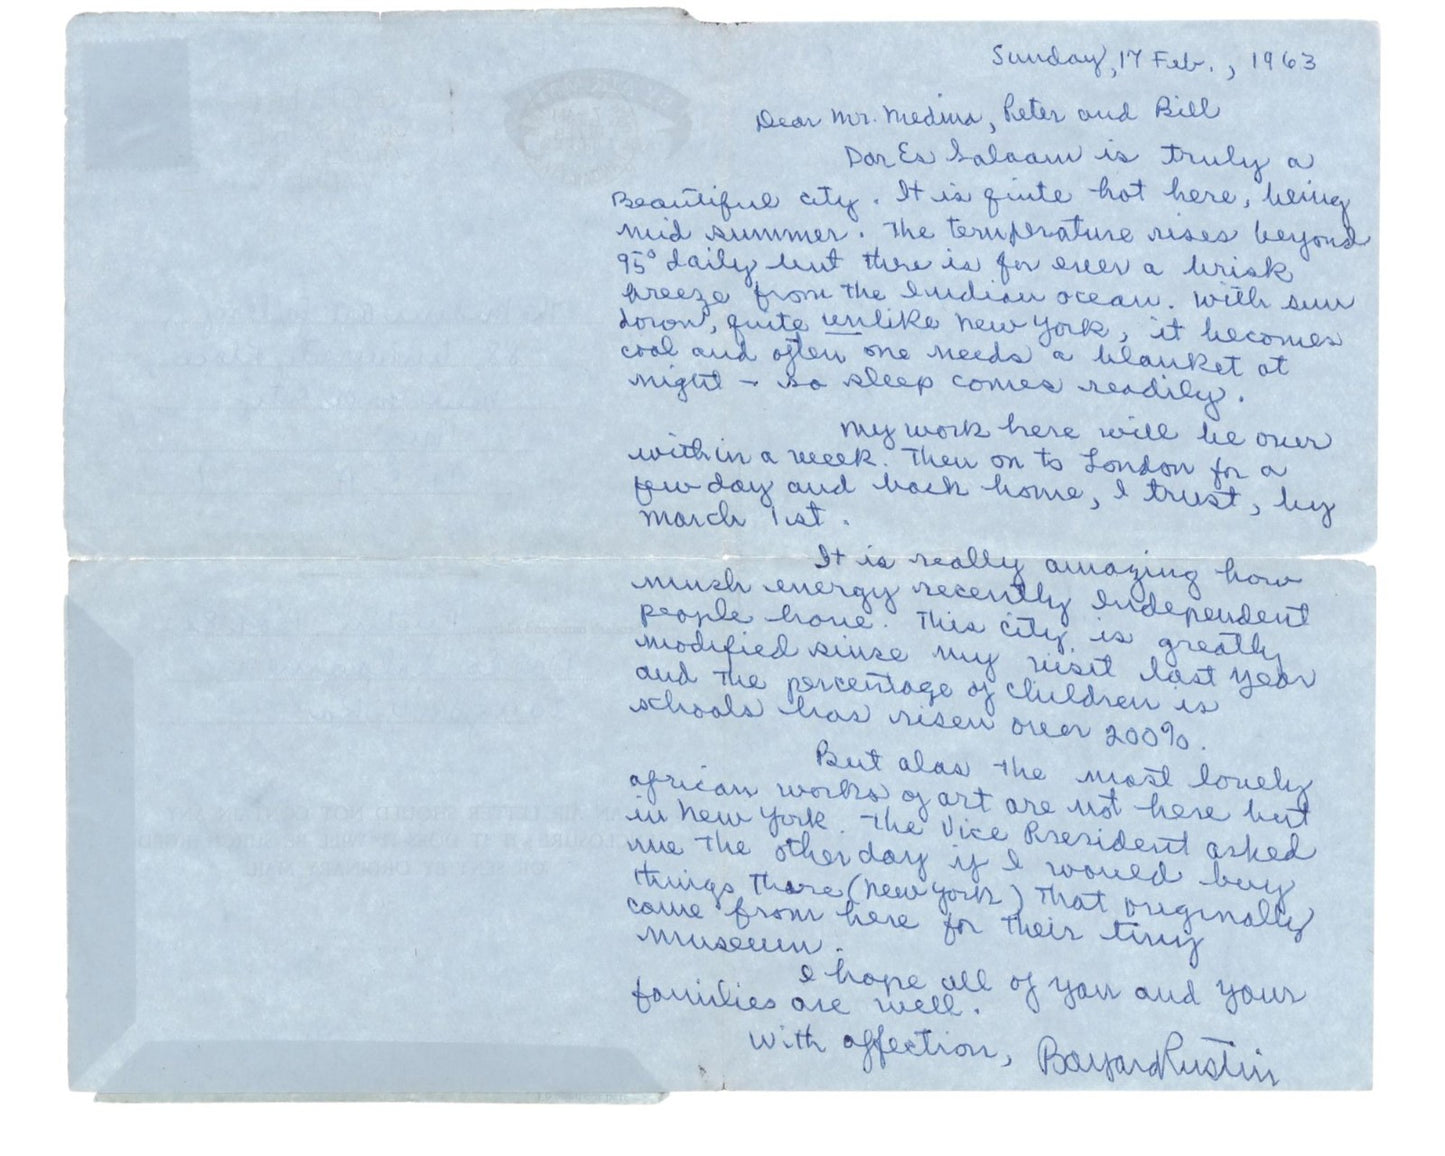 Sunday, 17 Feb., 1963
Dear Mr. Medina, Peter and Bill
Dar Es Salaam is truly a
Beautiful city. It is quite hot here, being
mid summer. The temperature rises beyond
95° daily but there is for ever a brisk
breeze from the Indian ocean. With sun
down, quite unlike New York, it becomes
cool and often one needs a blanket at
night - so sleep comes readily.
My work here will be over
within a week. Then on to London for a
few day and back home, I trust, by
March 1st.
It is really amazing how
much energy recently Independent
people have. This city is greatly
modified since my visit last year
and the percentage of children is
schools has risen over 200%.
But alas the most lovely
african works of art are not here but
in New York. The Vice President asked
me the other day if I would buy
things there (New York) that originally
came from here for their tiny
museum.
I hope all of you and your
families are well.
With affection, Bayard Rustin
AN AIR LETTER SHOULD NOT CONTAIN ANY
ENCLOSURE; IF IT DOES IT WILL BE SURCHARGED
OR SENT BY ORDINARY MAIL